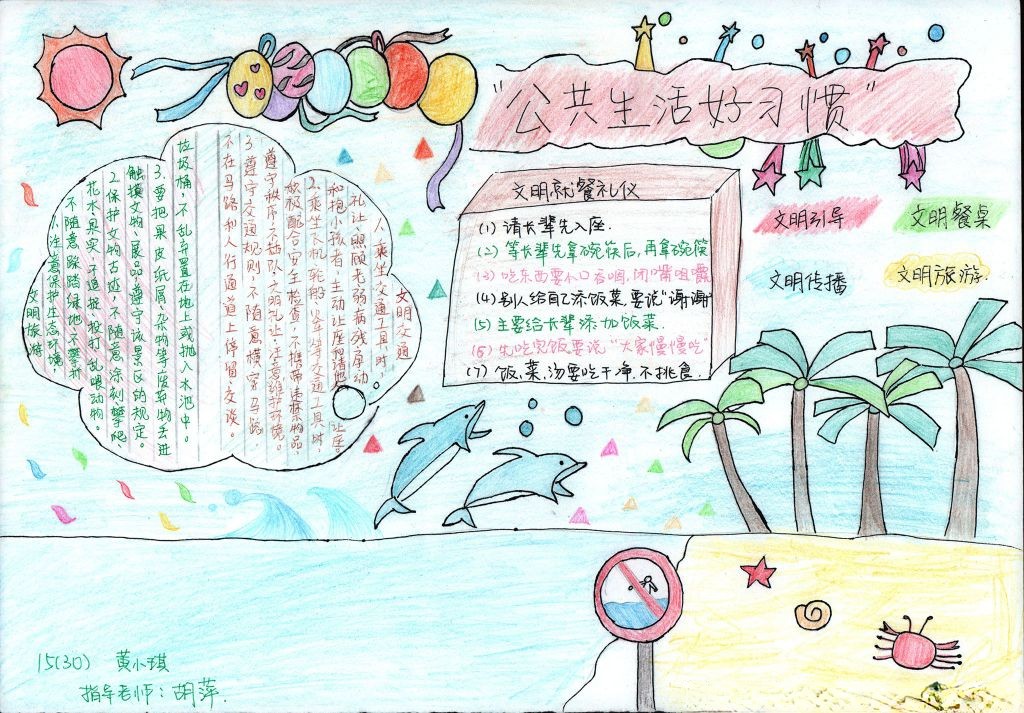 "公共生活好习惯"
文明就餐礼仪
(1) 请长辈先入座.
(2) 等长辈先拿碗筷后,再拿碗筷
(3) 吃东西要小口吞咽,闭嘴咀嚼
(4) 别人给自己添饭菜,要说"谢谢"
(5) 主要给长辈添加饭菜.
(6) 先吃完饭要说"大家慢慢吃"
(7) 饭、菜、汤要吃干净.不挑食.
文明引导
文明餐桌
文明传播
文明旅游.
文明交通
1、乘坐交通工具时,
礼让、照顾老弱病残孕幼
和抱小孩者,主动让座
2、乘坐飞机轮船火车等交通工具时,
积极配合安全检查,不携带违禁物品,
遵守秩序,
3、遵守交通规则,不随意横穿马路
不在马路和人行通道上停留、交谈。
文明旅游
1、注意保护生态环境,
不随意踩踏绿地,不攀折
花木果实,不追捉、投打、乱喂动物。
2、保护文物古迹,不随意涂刻、攀爬、
触摸文物、展品,遵守该景区的规定。
3、要把果皮纸屑、杂物等废弃物丢进
垃圾桶,不乱弃置在地上或抛入水池中。
15(30) 黄小琪
指导老师:胡萍.